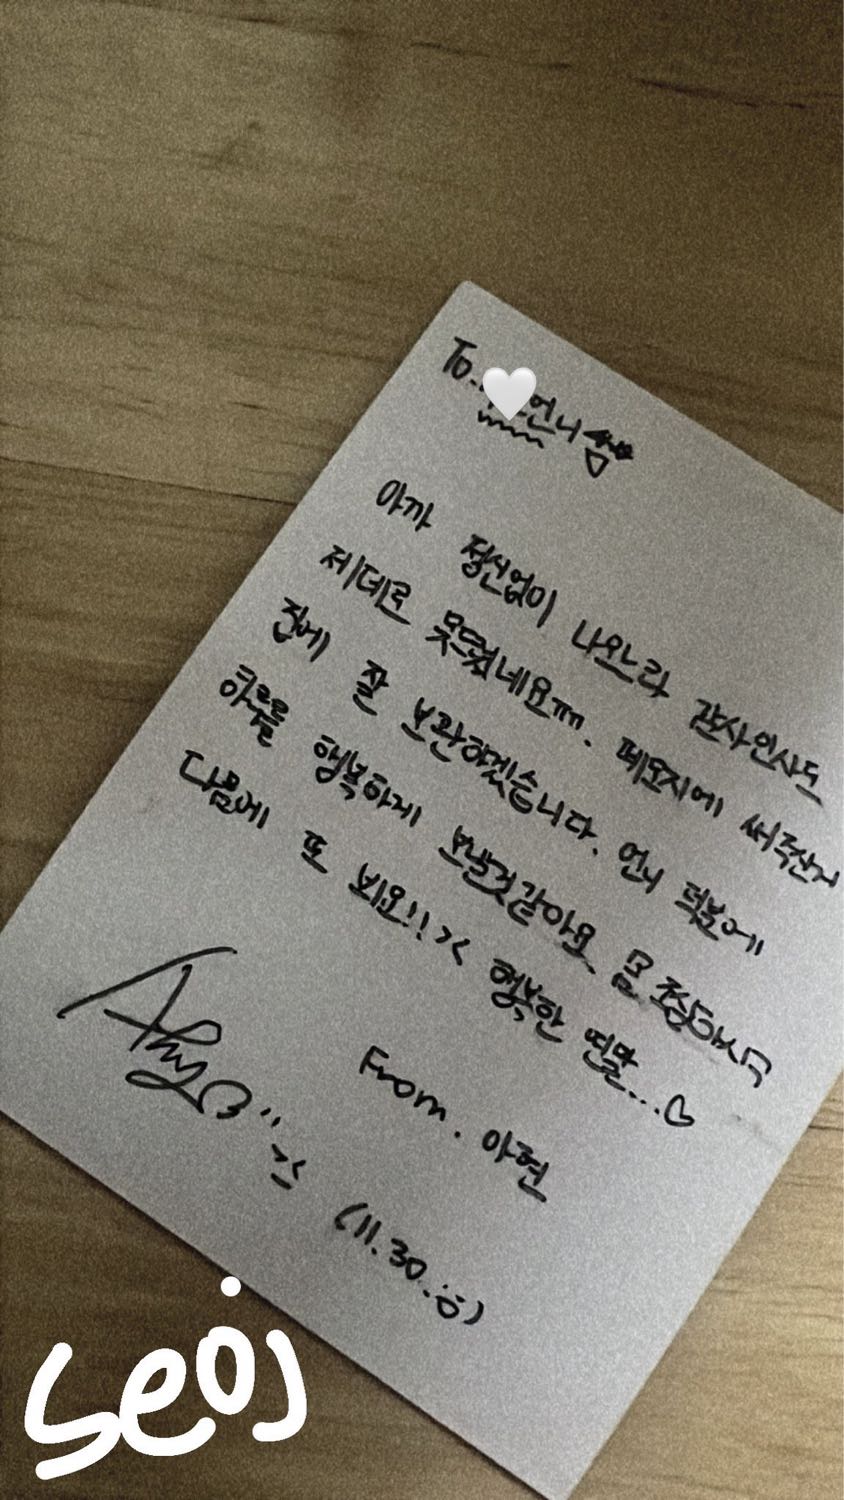 To. 언니
아까 정신없이 나오느라 감사인사도
제대로 못드렸네요ㅠㅠ. 메모지에 써주신거
집에 잘 보관하겠습니다. 언니 덕분에
하루를 행복하게 보낼것같아요 몸 조심하시구
다음에 또 봬요!! >< 행복한 연말...♡
From. 아현
(11.30.:))
seoj